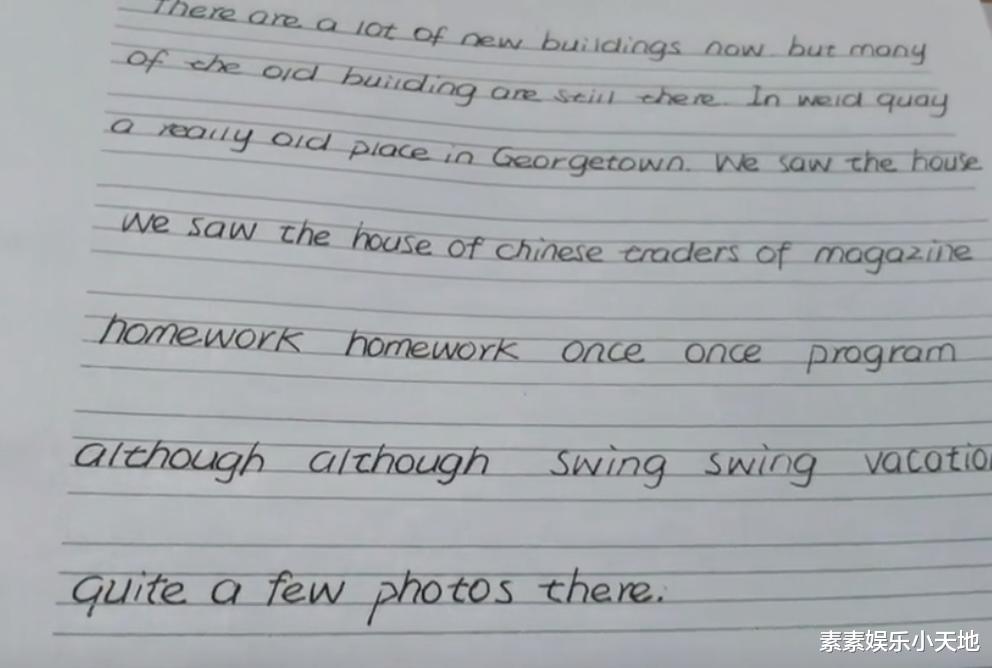 There are a lot of new buildings now but many
of the old building are still there. In weld quay
a really old place in Georgetown. We saw the house
We saw the house of chinese traders of magazine
homework homework once once program
although although swing swing vacatio
quite a few photos there.
素素娱乐小天地